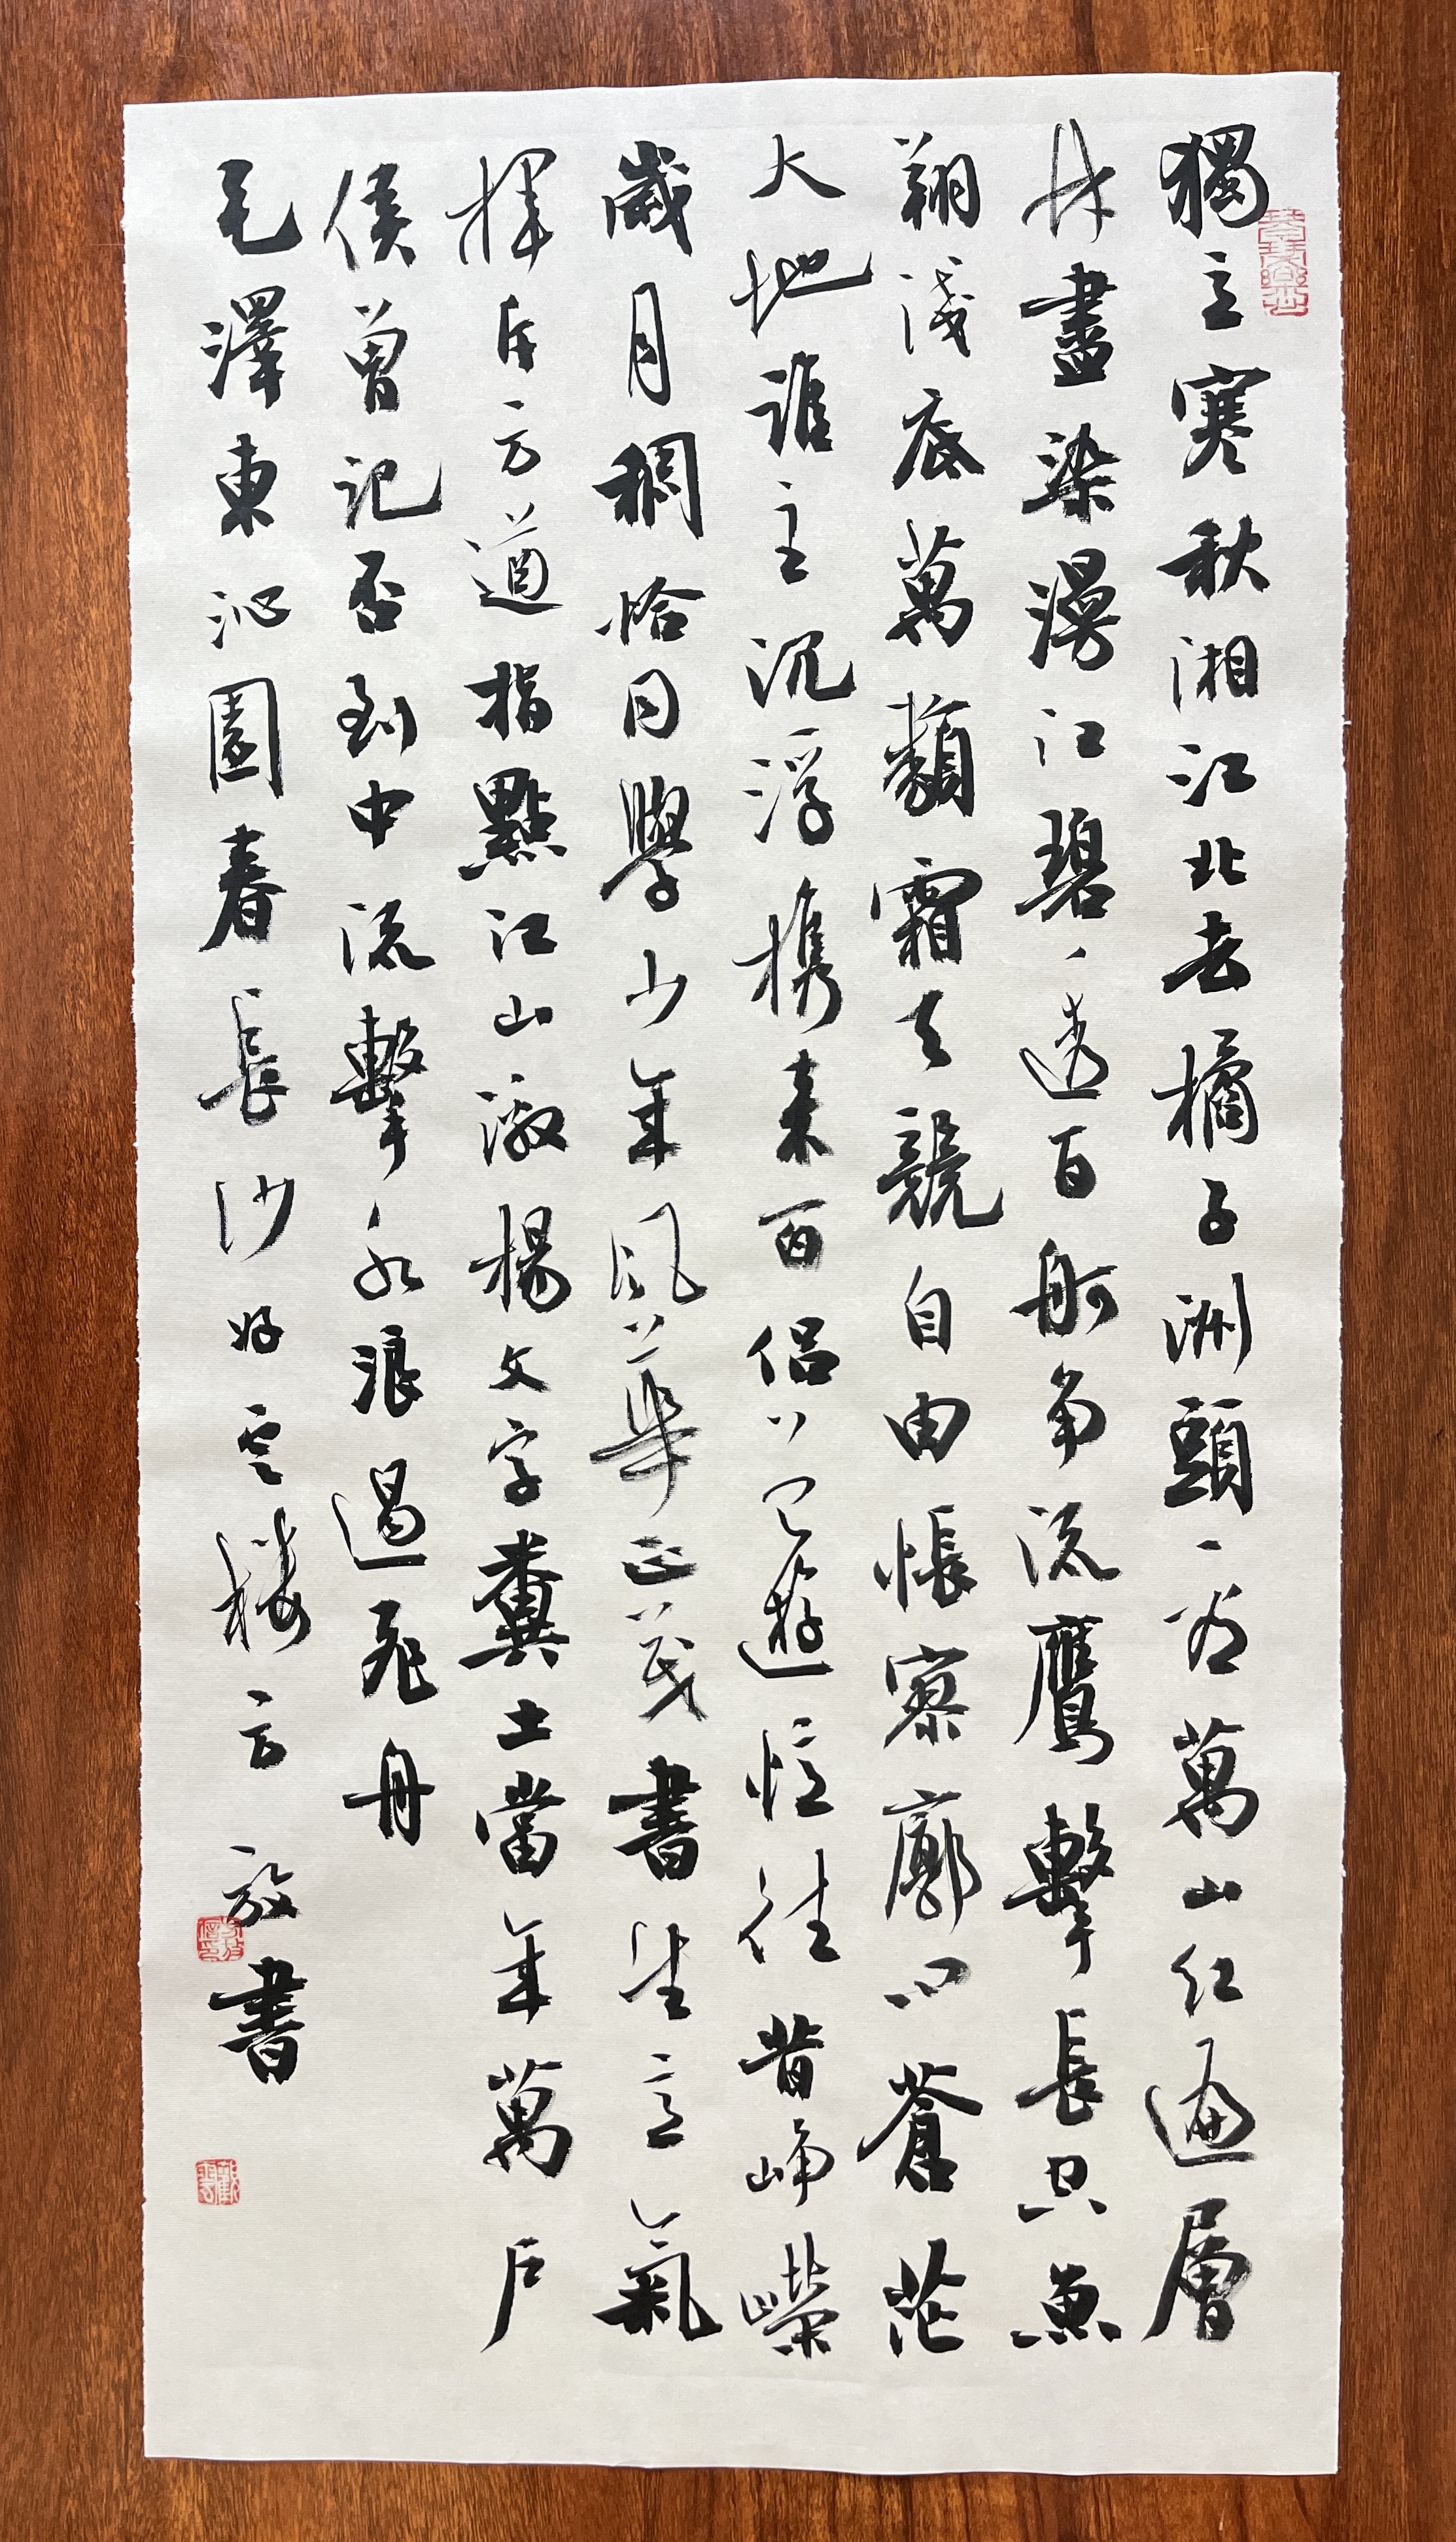 獨立寒秋湘江北去橘子洲頭看萬山紅遍層
林盡染漫江碧透百舸爭流鷹擊長空魚
翔淺底萬類霜天競自由悵寥廓問蒼茫
大地誰主沉浮携來百侶曾遊憶往昔崢嶸
歲月稠恰同學少年風華正茂書生意氣
揮斥方遒指點江山激揚文字糞土當年萬戶
侯曾記否到中流擊水浪遏飛舟
毛澤東沁園春長沙好雲樓方放書